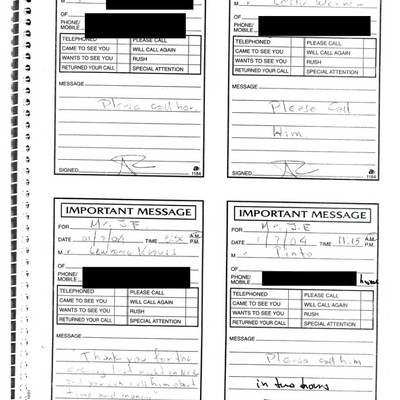 M
OF
PHONE/
MOBILE
TELEPHONED PLEASE CALL
CAME TO SEE YOU WILL CALL AGAIN
WANTS TO SEE YOU RUSH
RETURNED YOUR CALL SPECIAL ATTENTION
MESSAGE
Please call her
SIGNED
1184
M
OF
PHONE/
MOBILE
TELEPHONED PLEASE CALL
CAME TO SEE YOU WILL CALL AGAIN
WANTS TO SEE YOU RUSH
RETURNED YOUR CALL SPECIAL ATTENTION
MESSAGE
Please Call
Him
SIGNED
1184
IMPORTANT MESSAGE
FOR Mr. J.E
DATE TIME A.M.
P.M.
M r Lawrence Krauss
OF
PHONE/
MOBILE
TELEPHONED PLEASE CALL
CAME TO SEE YOU WILL CALL AGAIN
WANTS TO SEE YOU RUSH
RETURNED YOUR CALL SPECIAL ATTENTION
MESSAGE
Thank you for the
IMPORTANT MESSAGE
FOR Mr. J.E
DATE 1/7/04 TIME 11.15 A.M.
P.M.
M r Pinto
OF
PHONE/
MOBILE
TELEPHONED PLEASE CALL
CAME TO SEE YOU WILL CALL AGAIN
WANTS TO SEE YOU RUSH
RETURNED YOUR CALL SPECIAL ATTENTION
MESSAGE
Please call him
in two hours